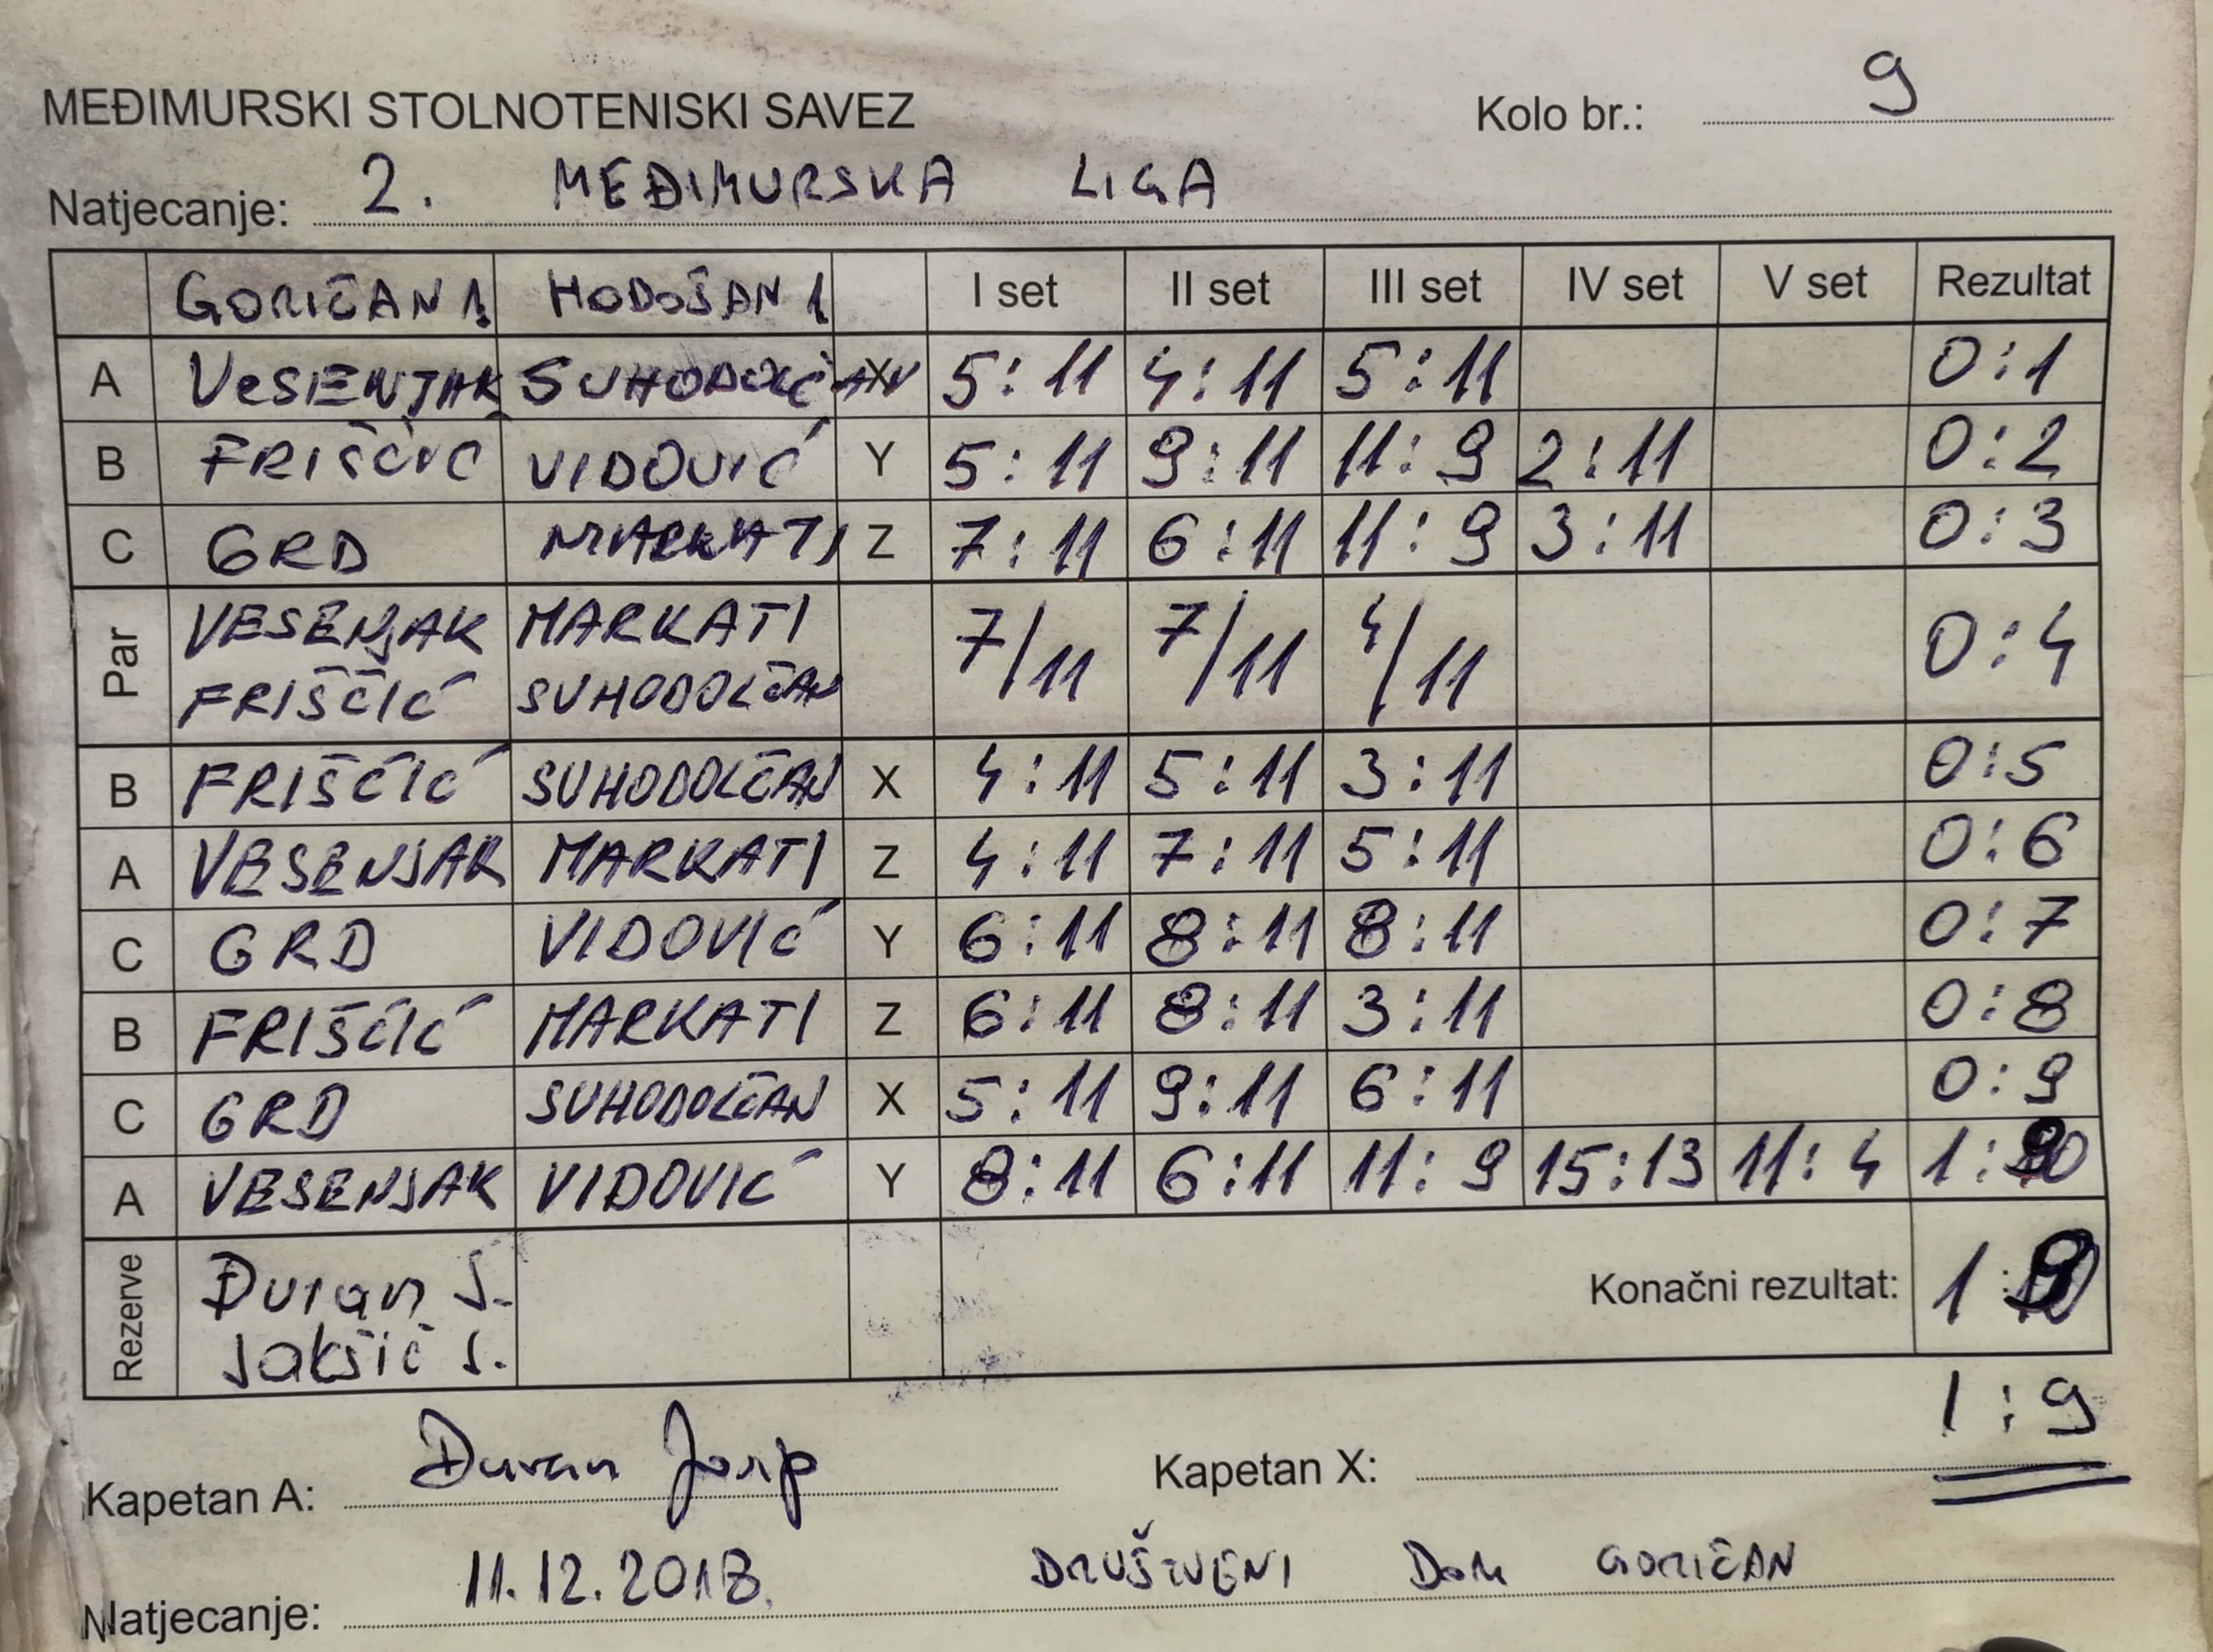 MEĐIMURSKI STOLNOTENISKI SAVEZ Kolo br.: 9
Natjecanje: 2. MEĐIMURSKA LIGA
GORIČAN 1. HODOŠAN 1 I set II set III set IV set V set Rezultat
A VeSENJAK SUHODOLČAN X 5:11 4:11 5:11 0:1
B FRIŠČIĆ VIDOVIĆ Y 5:11 9:11 11:9 2:11 0:2
C GRD MARKATI Z 7:11 6:11 11:9 3:11 0:3
Par VESENJAK MARKATI 7/11 7/11 4/11 0:4
FRIŠČIĆ SUHODOLČAN
B FRIŠČIĆ SUHODOLČAN X 4:11 5:11 3:11 0:5
A VESENJAK MARKATI Z 4:11 7:11 5:11 0:6
C GRD VIDOVIĆ Y 6:11 8:11 8:11 0:7
B FRIŠČIĆ MARKATI Z 6:11 8:11 3:11 0:8
C GRD SUHODOLČAN X 5:11 9:11 6:11 0:9
A VESENJAK VIDOVIĆ Y 8:11 6:11 11:9 15:13 11:4 1:9
Rezerve Đuran J. Konačni rezultat: 1:9
Jakšić S.
1:9
Kapetan A: Đuran Josip Kapetan X:
Natjecanje: 11.12.2018. DRUŠTVENI DOM GORIČAN